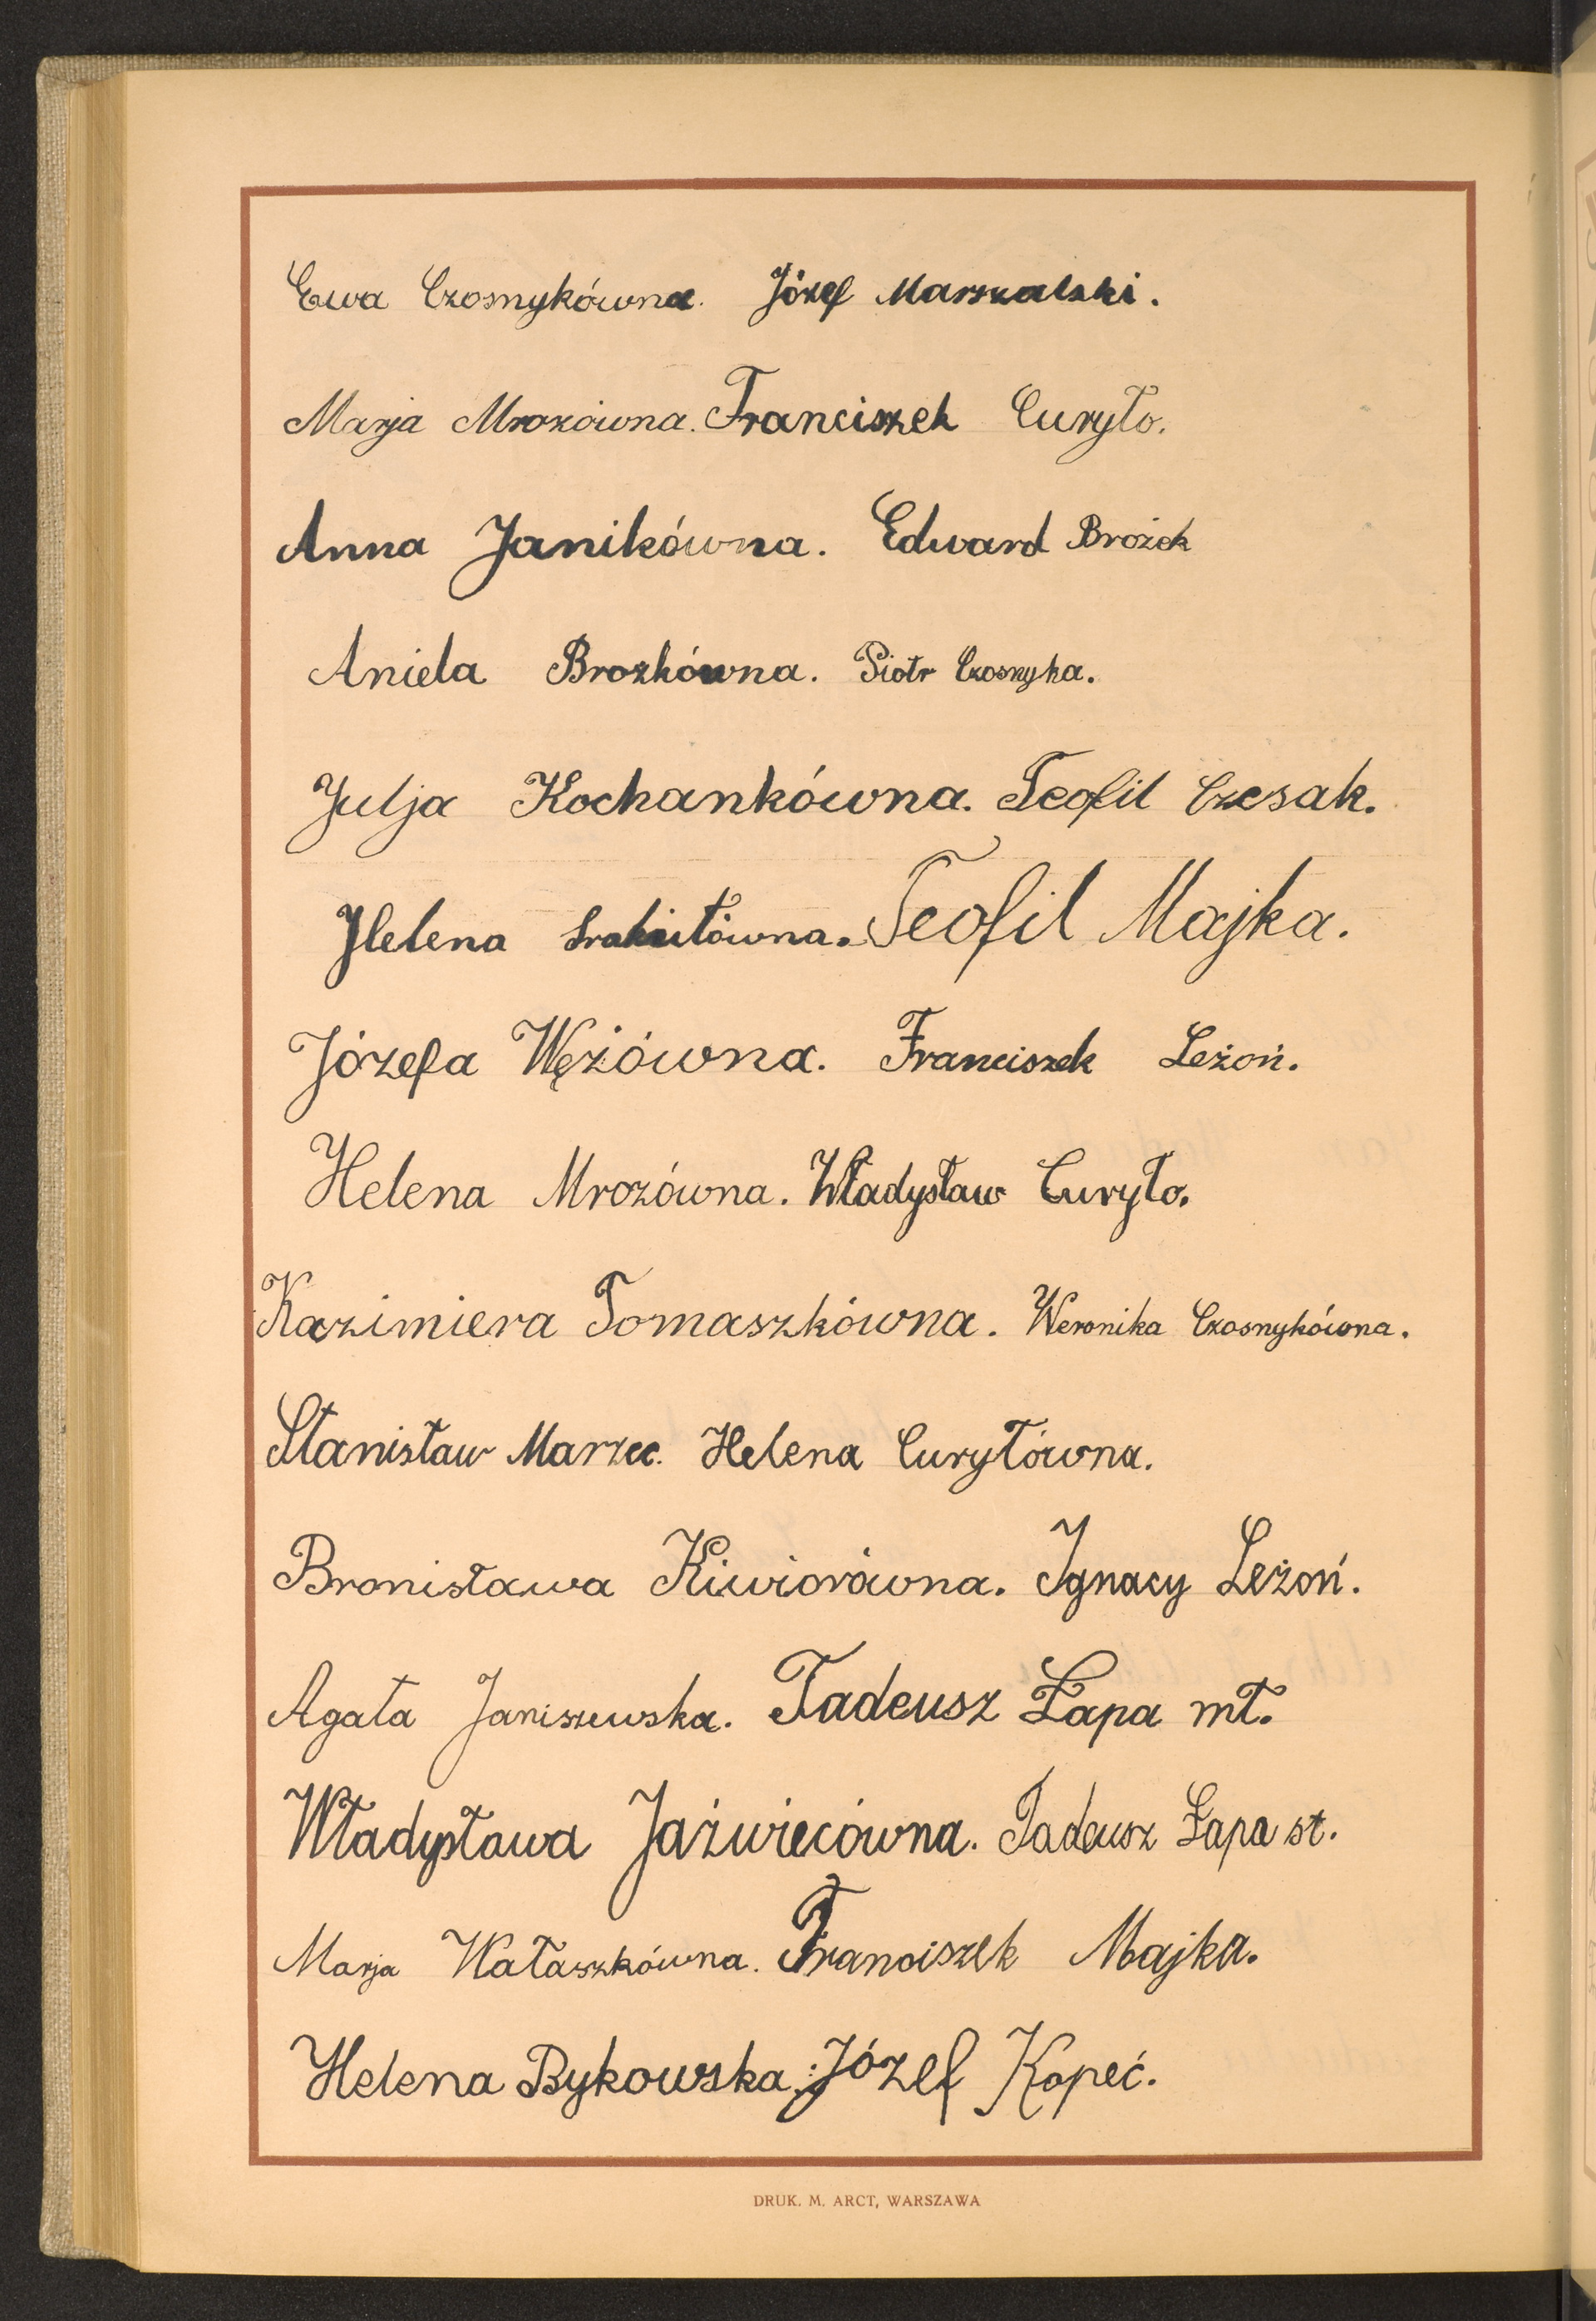 Ewa Czosnykówna. Józef Marszalski.
Marja Mrozówna. Franciszek Curyło.
Anna Janikówna. Edward Brożek
Aniela Brożkówna. Piotr Czosnyka.
Julja Kochankówna. Teofil Czesak.
Helena Teofil Majka.
Józefa Wężówna. Franciszek Leżoń.
Helena Mrozówna. Władysław Curyło.
Kazimiera Tomaszkówna. Weronika Czosnykówna.
Stanisław Marzec. Helena Curyłówna.
Bronisława Kiwiorówna. Ignacy Leżoń.
Agata Janiszewska. Tadeusz Łapa mł.
Władysława Jaźwiecówna. Tadeusz Łapa st.
Marja Wałaszkówna. Franciszek Majka.
Helena Bykowska. Józef Kopeć.
DRUK. M. ARCT, WARSZAWA